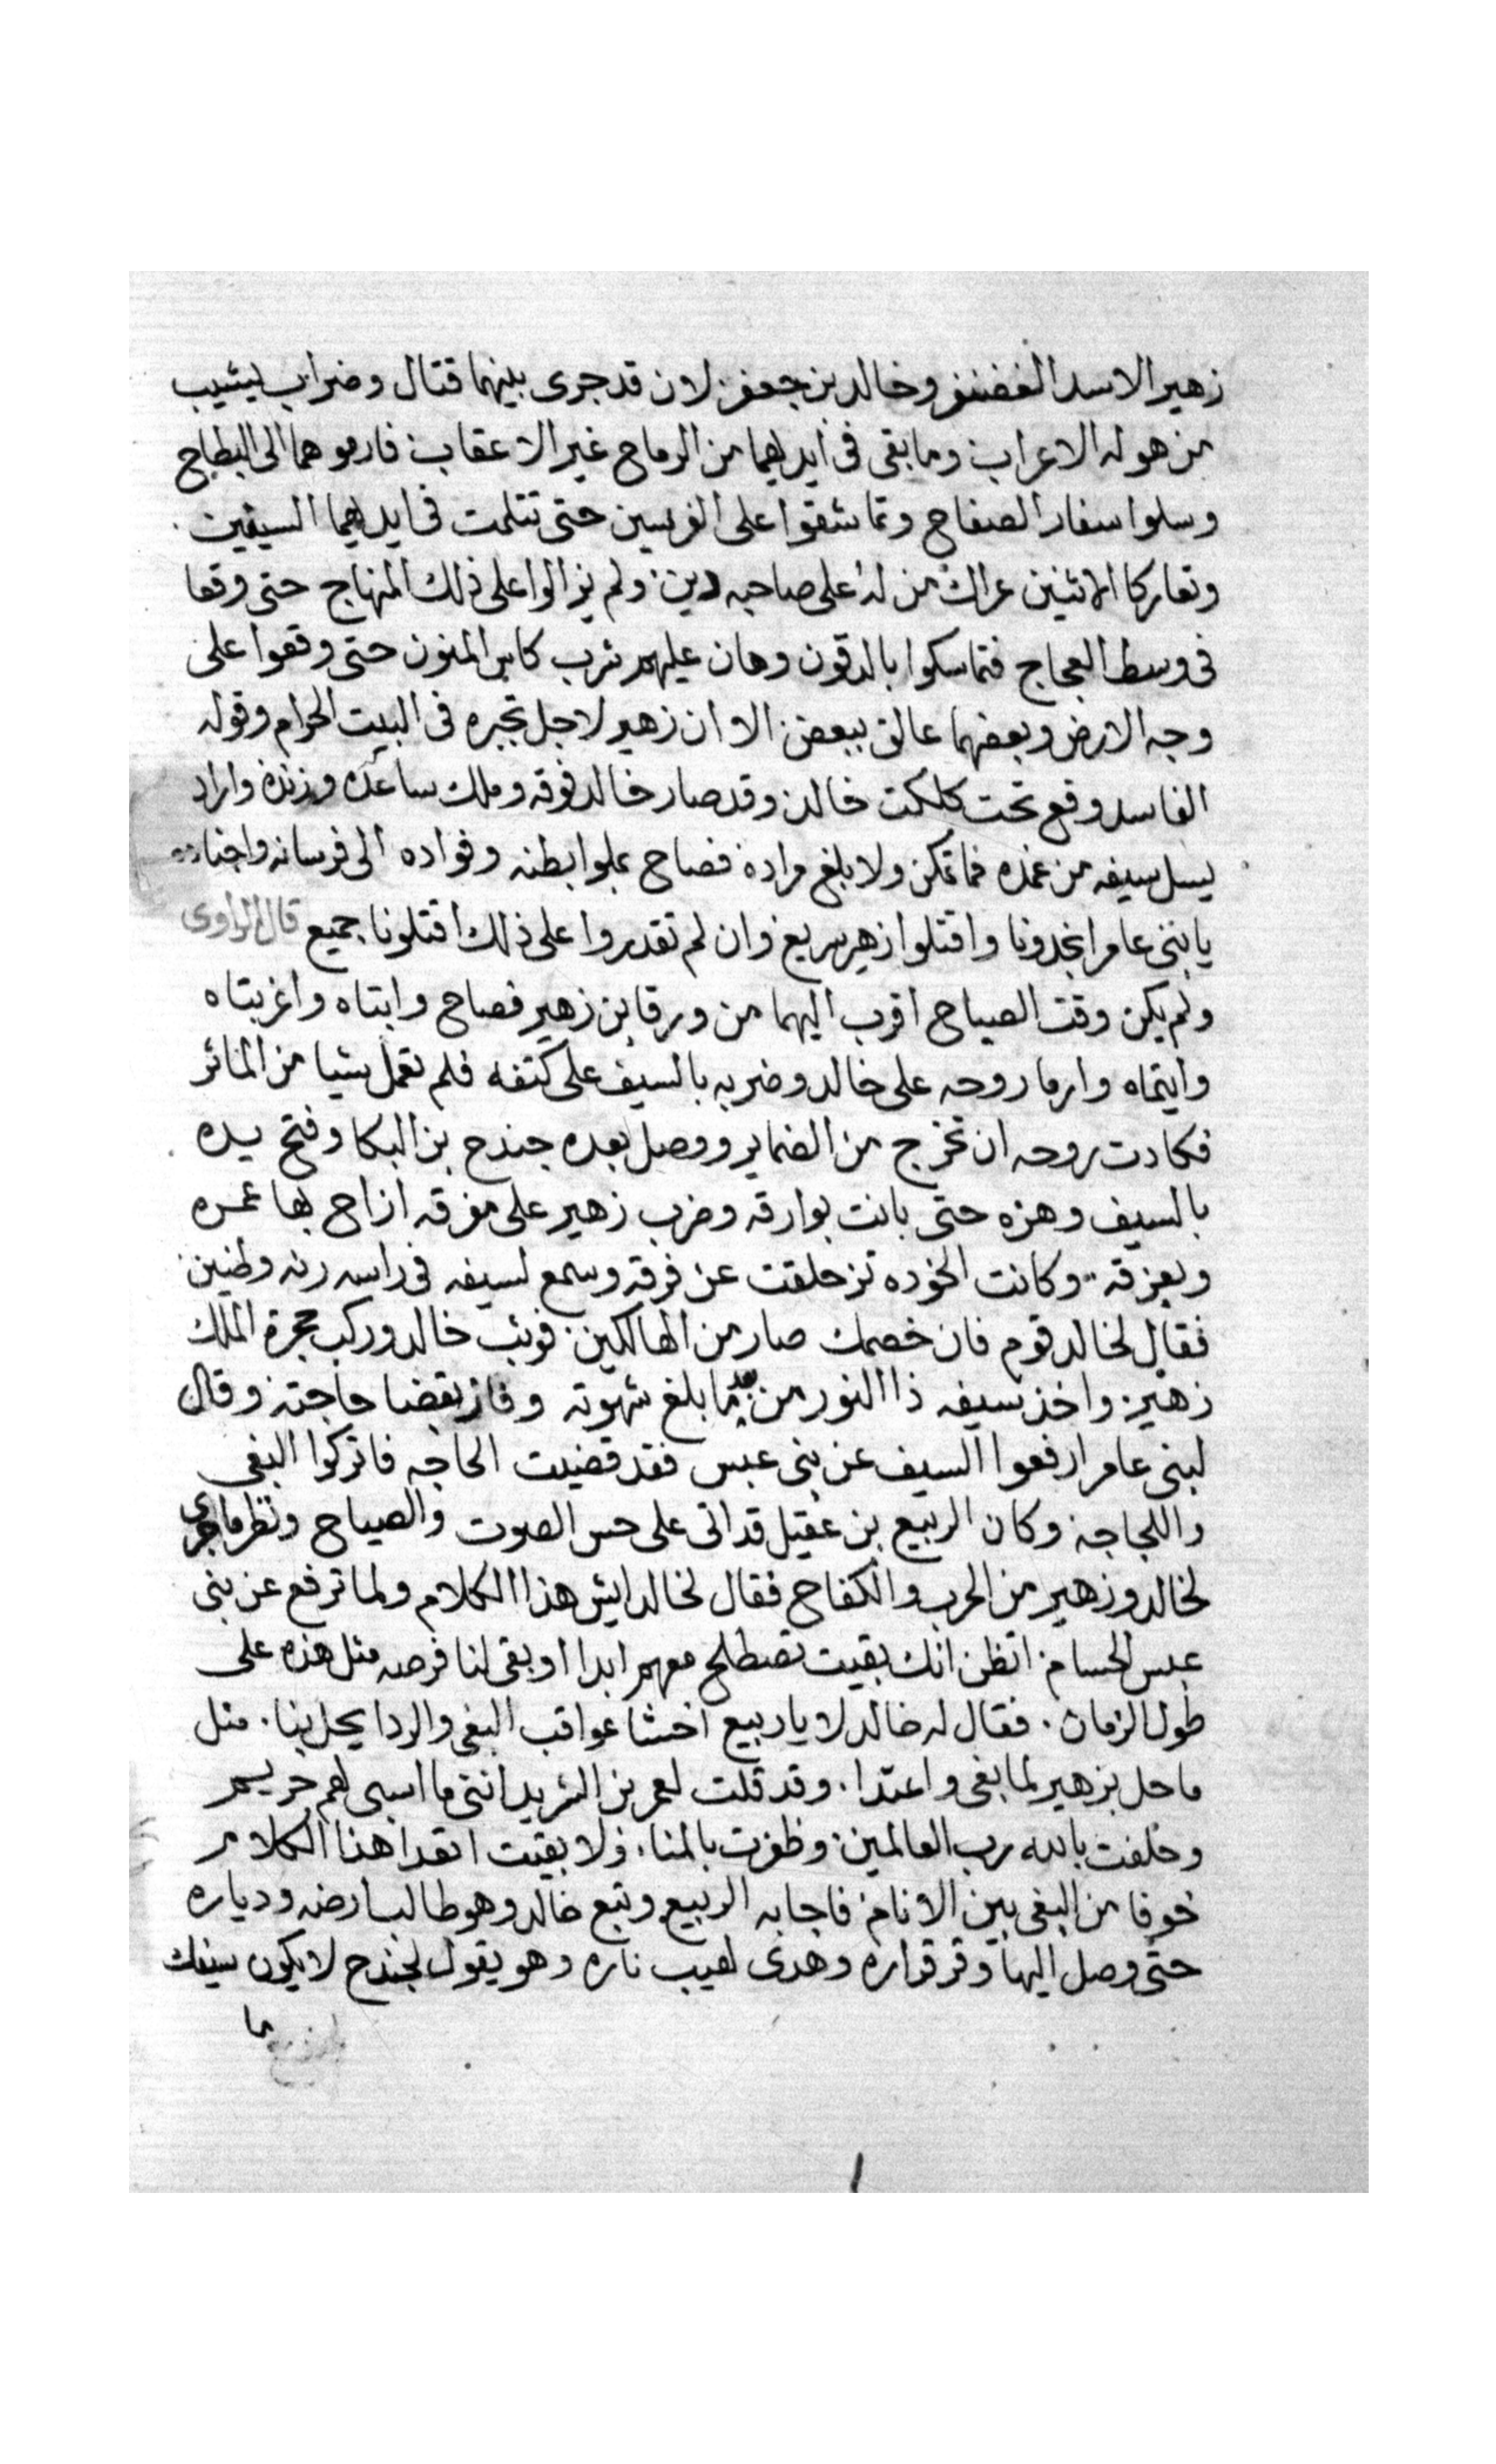 زهير الاسد الغضنفر وخالد بن جعفر لان قد جرى بينهما قتال وضراب يشيب
من هوله الاعراب وما بقى فى ايديهما من الرماح غير الاعقاب فارموهما الى البطاح
وسلوا سفار الصفاح وتماشقوا على الفرسين حتى تتلمت فى ايديهما السيفين
وتعاركا الاثنين عراك من له على صاحبه دين ولم يزالوا على ذلك المنهاج حتى وقعا
فى وسط العجاج فتماسكوا بالدقون وهان عليهم شرب كاس المنون حتى وقعوا على
وجه الارض وبعضهما عالق ببعض الا ان زهير لاجل تجبره فى البيت الحرام وقوله
الفاسد وقع تحت كلكت خالد وقد صار خالد فوقه وملك ساعده وزنده واراد
يسل سيفه من غمده فما تمكن ولا بلغ مراده فصاح بملوا بطنه وفواده الى فرسانه واجناده
يا بنى عامر انجدونا واقتلوا زهير سريع وان لم تقدروا على ذلك اقتلونا جميع قال الراوى
ولم يكن وقت الصياح اقرب اليهما من ورقا بن زهير فصاح وابتاه واغربتاه
وايتماه وارما روحه على خالد وضربه بالسيف على كتفه فلم تعمل شيا من الماثر
فكادت روحه ان تخرج من الضماير ووصل بعده جندح بن البكا وفتح يده
بالسيف وهزه حتى بانت بوارقه وضرب زهير على مفرقه ازاح بها عمره
وبعزقه وكانت الخوده تزحلقت عن فرقه وسمع لسيفه فى راسه رنه وطنين
فقال لخالد قوم فان خصمك صار من الهالكين فوثب خالد وركب حجرة الملك
زهير واخذ سيفه ذا النور من بعد ما بلغ شهوته وفاز بقضا حاجته وقال
لبنى عامر ارفعوا السيف عن بنى عبس فقد قضيت الحاجه فاتركوا البغى
واللجاجه وكان الربيع بن عقيل قد اتى على حس الصوت والصياح ونظر ما جرى
لخالد وزهير من الحرب والكفاح فقال لخالد ايش هذا الكلام ولما ترفع عن بنى
عبس الحسام اتظن انك بقيت تصطلح معهم ابدا او بقى لنا فرصه مثل هذه على
طول الزمان فقال له خالد لا يا ربيع اخشا عواقب البغى والردا يحل بنا مثل
ما حل بزهير لما بغى واعتدا وقد قلت لعمر بن الشريد اننى ما اسبى لهم حريم
وحلفت بالله رب العالمين وظفرت بالمنا ولا بقيت اتعدا هذا الكلام
خوفا من البغى بين الانام فاجابه الربيع وتبع خالد وهو طالب ارضه ودياره
حتى وصل اليها وقر قراره وهدى لهيب ناره وهو يقول لجندح لا يكون سيفك
ما